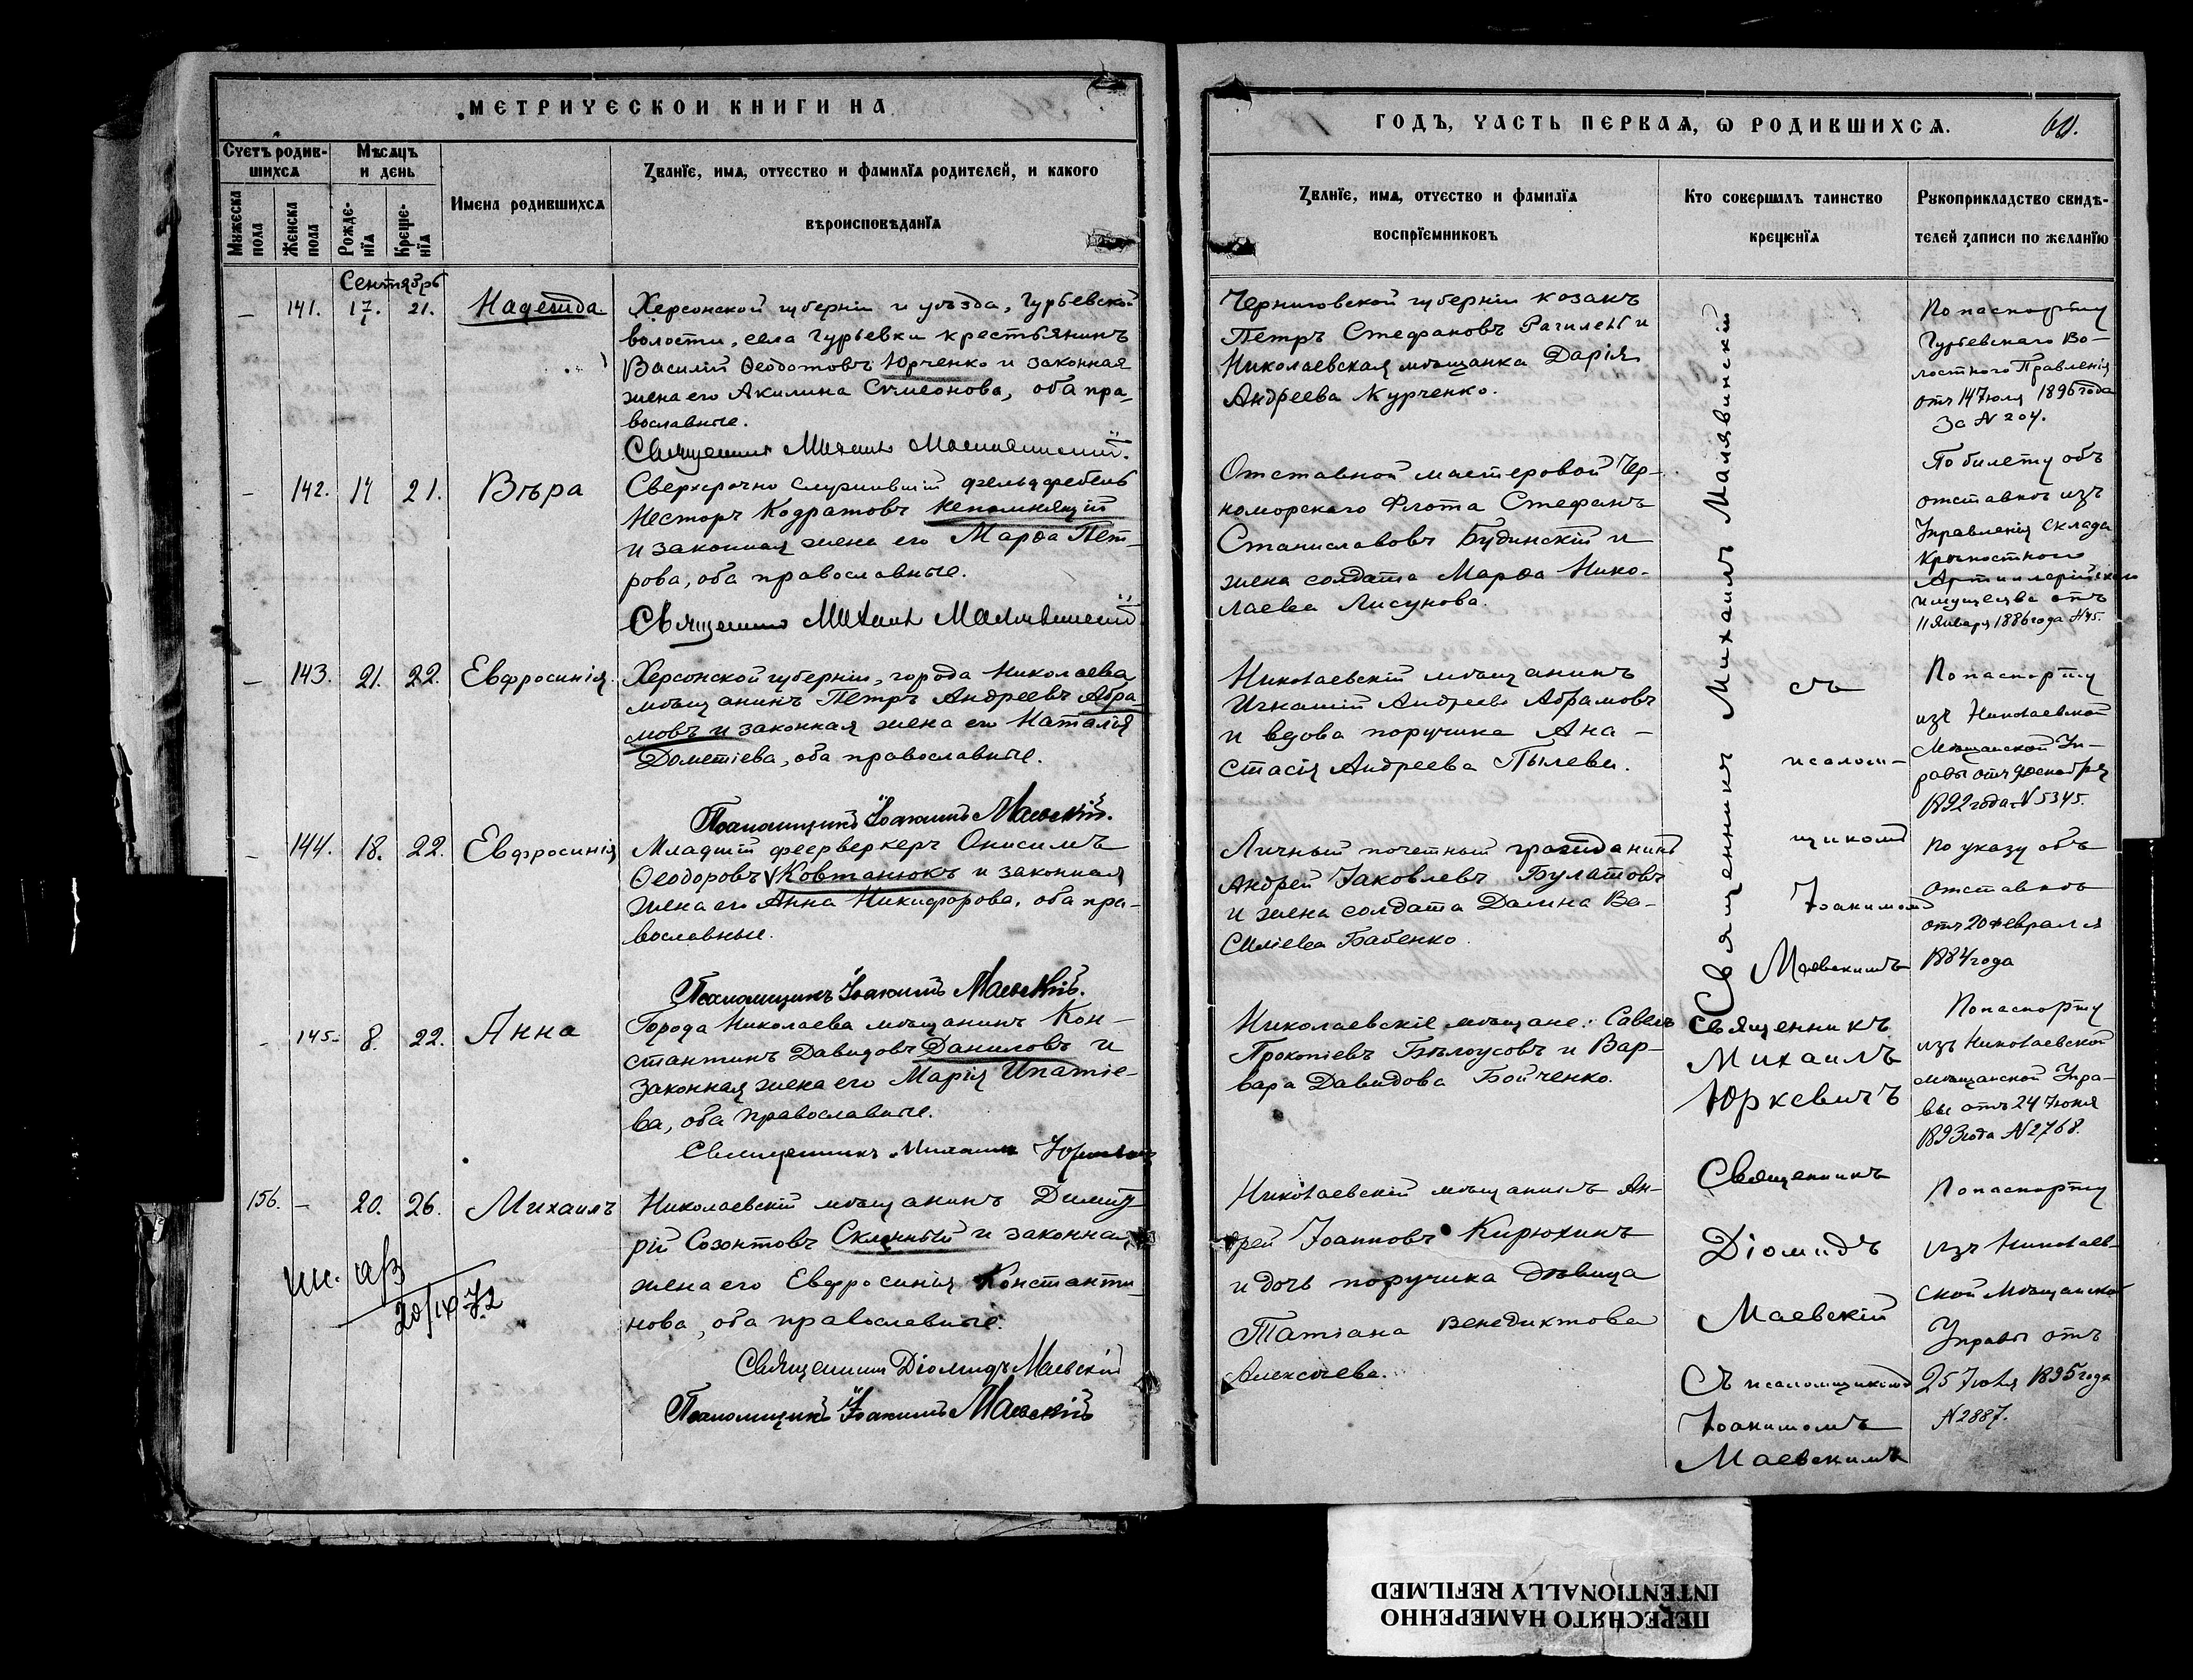 МЕТРИЧЕСКОЙ КНИГИ НА
Счетъ родив-
шихся
Мѣсяцъ
и день
Мужеска
пола
Женска
пола
Рожде-
нїя
Креще-
нїя
Имена родившихся
Званїе, имя, отчество и фамилїя родителей, и какого
вѣроисповѣданїя
Сентябрь
— 141. 17. 21. Надежда
Херсонской губерніи и уѣзда, Гурьевской
волости, села Гурьевки крестьянинъ
Василій Ѳеодотовъ Юрченко и законная
жена его Акилина Симеонова, оба пра-
вославные.
Священникъ Михаилъ Малявинскій.
— 142. 17 21. Вѣра
Сверхсрочно служившій фельдфебель
Несторъ Кодратовъ Непомнящій
и законная жена его Марѳа Пет-
рова, оба православные.
Священникъ Михаилъ Малявинскій
— 143. 21. 22. Евфросинія.
Херсонской губерніи, города Николаева
мѣщанинъ Петръ Андреевъ Абра-
мовъ и законная жена его Наталія
Дометіева, оба православные.
Псаломщикъ Іоакимъ Маевскій.
— 144. 18. 22. Евфросинія
Младшій фееверкеръ Онисимъ
Ѳеодоровъ Ковтанюкъ и законная
жена его Анна Никифорова, оба пра-
вославные.
Псаломщикъ Іоакимъ Маевскій.
— 145. 8. 22. Анна
Города Николаева мѣщанинъ Кон-
стантинъ Давидовъ Даниловъ и
законная жена его Марія Ипатіе-
ва, оба православные.
Священникъ Михаилъ Юркевичъ
156. — 20. 26. Михаилъ
Николаевскій мѣщанинъ Димит-
рій Созонтовъ Скляный и законная
жена его Евфросинія Константи
нова, оба православные.
Священникъ Діомидъ Маевскій
Псаломщикъ Іоакимъ Маевскій
20/IX 72
ГОДЪ, ЧАСТЬ ПЕРВАЯ, Ѡ РОДИВШИХСЯ.
60.
Званїе, имя, отчество и фамилїя
воспрїемниковъ
Кто совершалъ таинство
крещенїя
Рукоприкладство свидѣ-
телей записи по желанїю
Черниговской губерніи козакъ
Петръ Стефановъ и
Николаевская мѣщанка Дарія
Андреева Курченко.
Отставной мастеровой Чер-
номорскаго Флота Стефанъ
Станиславовъ Будинскій и
жена солдата Марѳа Нико-
лаева Лисунова.
Николаевскій мѣщанинъ
Игнатій Андреевъ Абрамовъ
и вдова поручика Ана-
стасія Андреева Пылева.
Личный почетный гражданинъ
Андрей Іаковлевъ Булатовъ
и жена солдата Ва-
силіева Бабенко.
Николаевскіе мѣщане: Савелъ
Прокопіевъ Бѣлоусовъ и Вар-
вара Давидова Бойченко.
Николаевскій мѣщанинъ Ан-
дрей Іоанновъ Кирюхинъ
и дочь поручика дѣвица
Татіана Венедиктова
Алексѣева.
Священникъ Михаилъ Малявинскій
съ
псалом-
щикомъ
Іоакимомъ
Маевскимъ
Священникъ
Михаилъ
Юркевичъ
Священникъ
Діомидъ
Маевскій
Съ псаломщикомъ
Іоакимомъ
Маевскимъ
По паспорту
Гурьевскаго Во-
лостного Правленія
отъ 14 Іюля 1896 года
За № 204.
По билету объ
отставкѣ изъ
Управленія Склада
Крѣпостного
Артиллерійскаго
имущества отъ
11 Января 1886 года №45.
По паспорту
изъ Николаевской
Мѣщанской Уп-
равы отъ 9 декабря
1892 года № 5345.
По указу объ
отставкѣ
отъ 20 Февраля
1884 года
По паспорту
изъ Николаевской
мѣщанской Упра-
вы отъ 24 Іюня
1893 года № 2768.
По паспорту
изъ Николаев-
ской Мѣщанской
Управы отъ
25 Іюля 1895 года
№ 2887.
ПЕРЕСНЯТО НАМЕРЕННО
INTENTIONALLY REFILMED